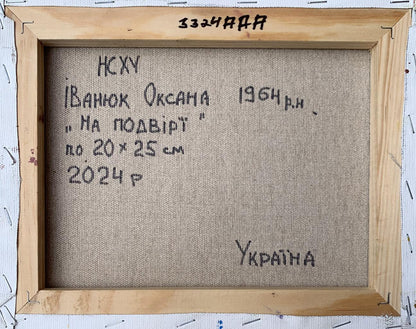 3324ААА
НСХУ
Іванюк Оксана 1964 р.н
„На подвірї"
по 20 × 25 см
2024 р
Україна